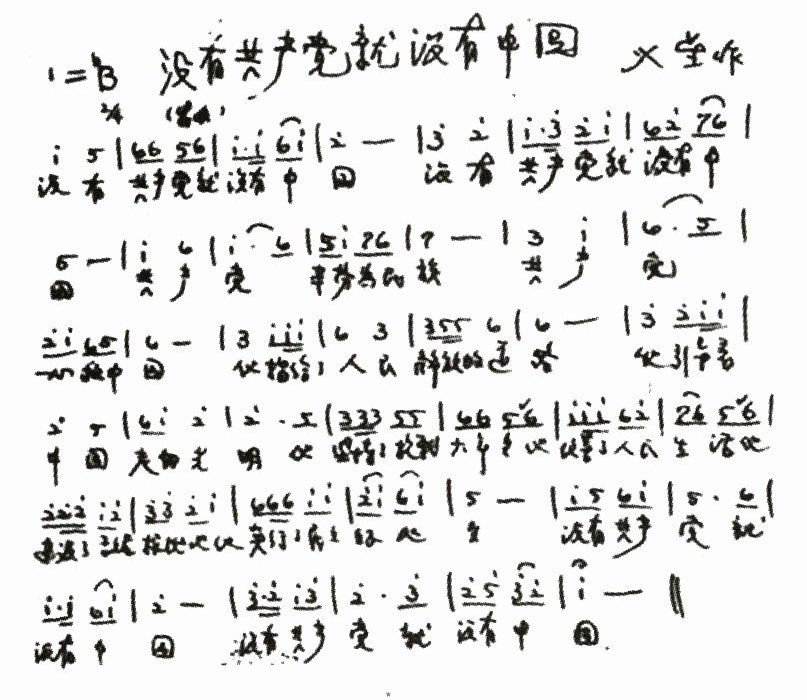 1=♭B 没有共产党就没有中国 火星作
2/4
i 5 | 66 56 | i·i 6i | 2 — | 3 2 | i·3 2i | 62 76 |
没有 共产党就 没有 中 国 没有 共产党就 没有中
5 — | i 6 | i · 6 | 5i 76 | 7 — | 3 i | 6 · 5 |
国 共产党 辛劳为民族 共产党
2i 65 | 6 — | 3 iii | 6 3 | 355 6 | 6 — | 3 2ii |
一心 中国 他指给了 人民 解放的道路 他引
2 5 | 6i 2 | 2 · 5 | 333 55 | 66 56 | iii 62 | 76 56 |
中国 走向光明 他 坚持了抗战 八年多他 改善了人民 生活他
222 i2 | 33 2i | 666 ii | 2i 6i | 5 — | i5 6i | 5 · 6 |
建设了 敌后根据地他 实行了民主 好处多 没有共产党就
i·i 6i | 2 — | 3·2 i3 | 2 · 3 | 25 32 | i — ‖
没有 中 国 没有共产党 就 没有 中 国